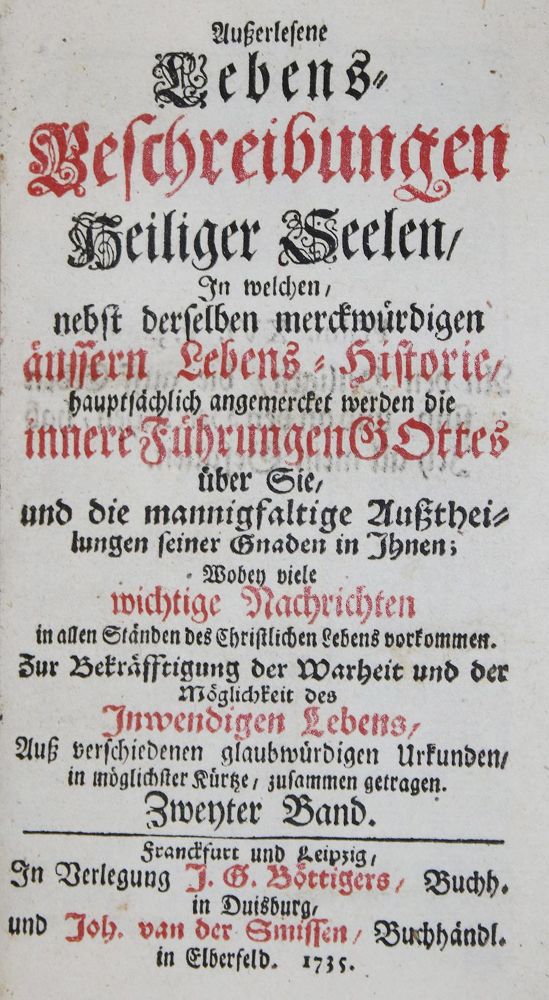 Außerlesene
Lebens-
Beschreibungen
Heiliger Seelen/
In welchen/
nebst derselben merckwürdigen
äussern Lebens-Historie/
hauptsächlich angemercket werden die
innere Führungen GOttes
über Sie/
und die mannigfaltige Außthei-
lungen seiner Gnaden in Ihnen;
Wobey viele
wichtige Nachrichten
in allen Ständen des Christlichen Lebens vorkommen.
Zur Bekräfftigung der Warheit und der
Möglichkeit des
Inwendigen Lebens/
Auß verschiedenen glaubwürdigen Urkunden/
in möglichster Kürtze/ zusammen getragen.
Zweyter Band.
Franckfurt und Leipzig/
In Verlegung J. G. Böttigers/ Buchh.
in Duisburg/
und Joh. van der Smissen/ Buchhändl.
in Elberfeld. 1735.